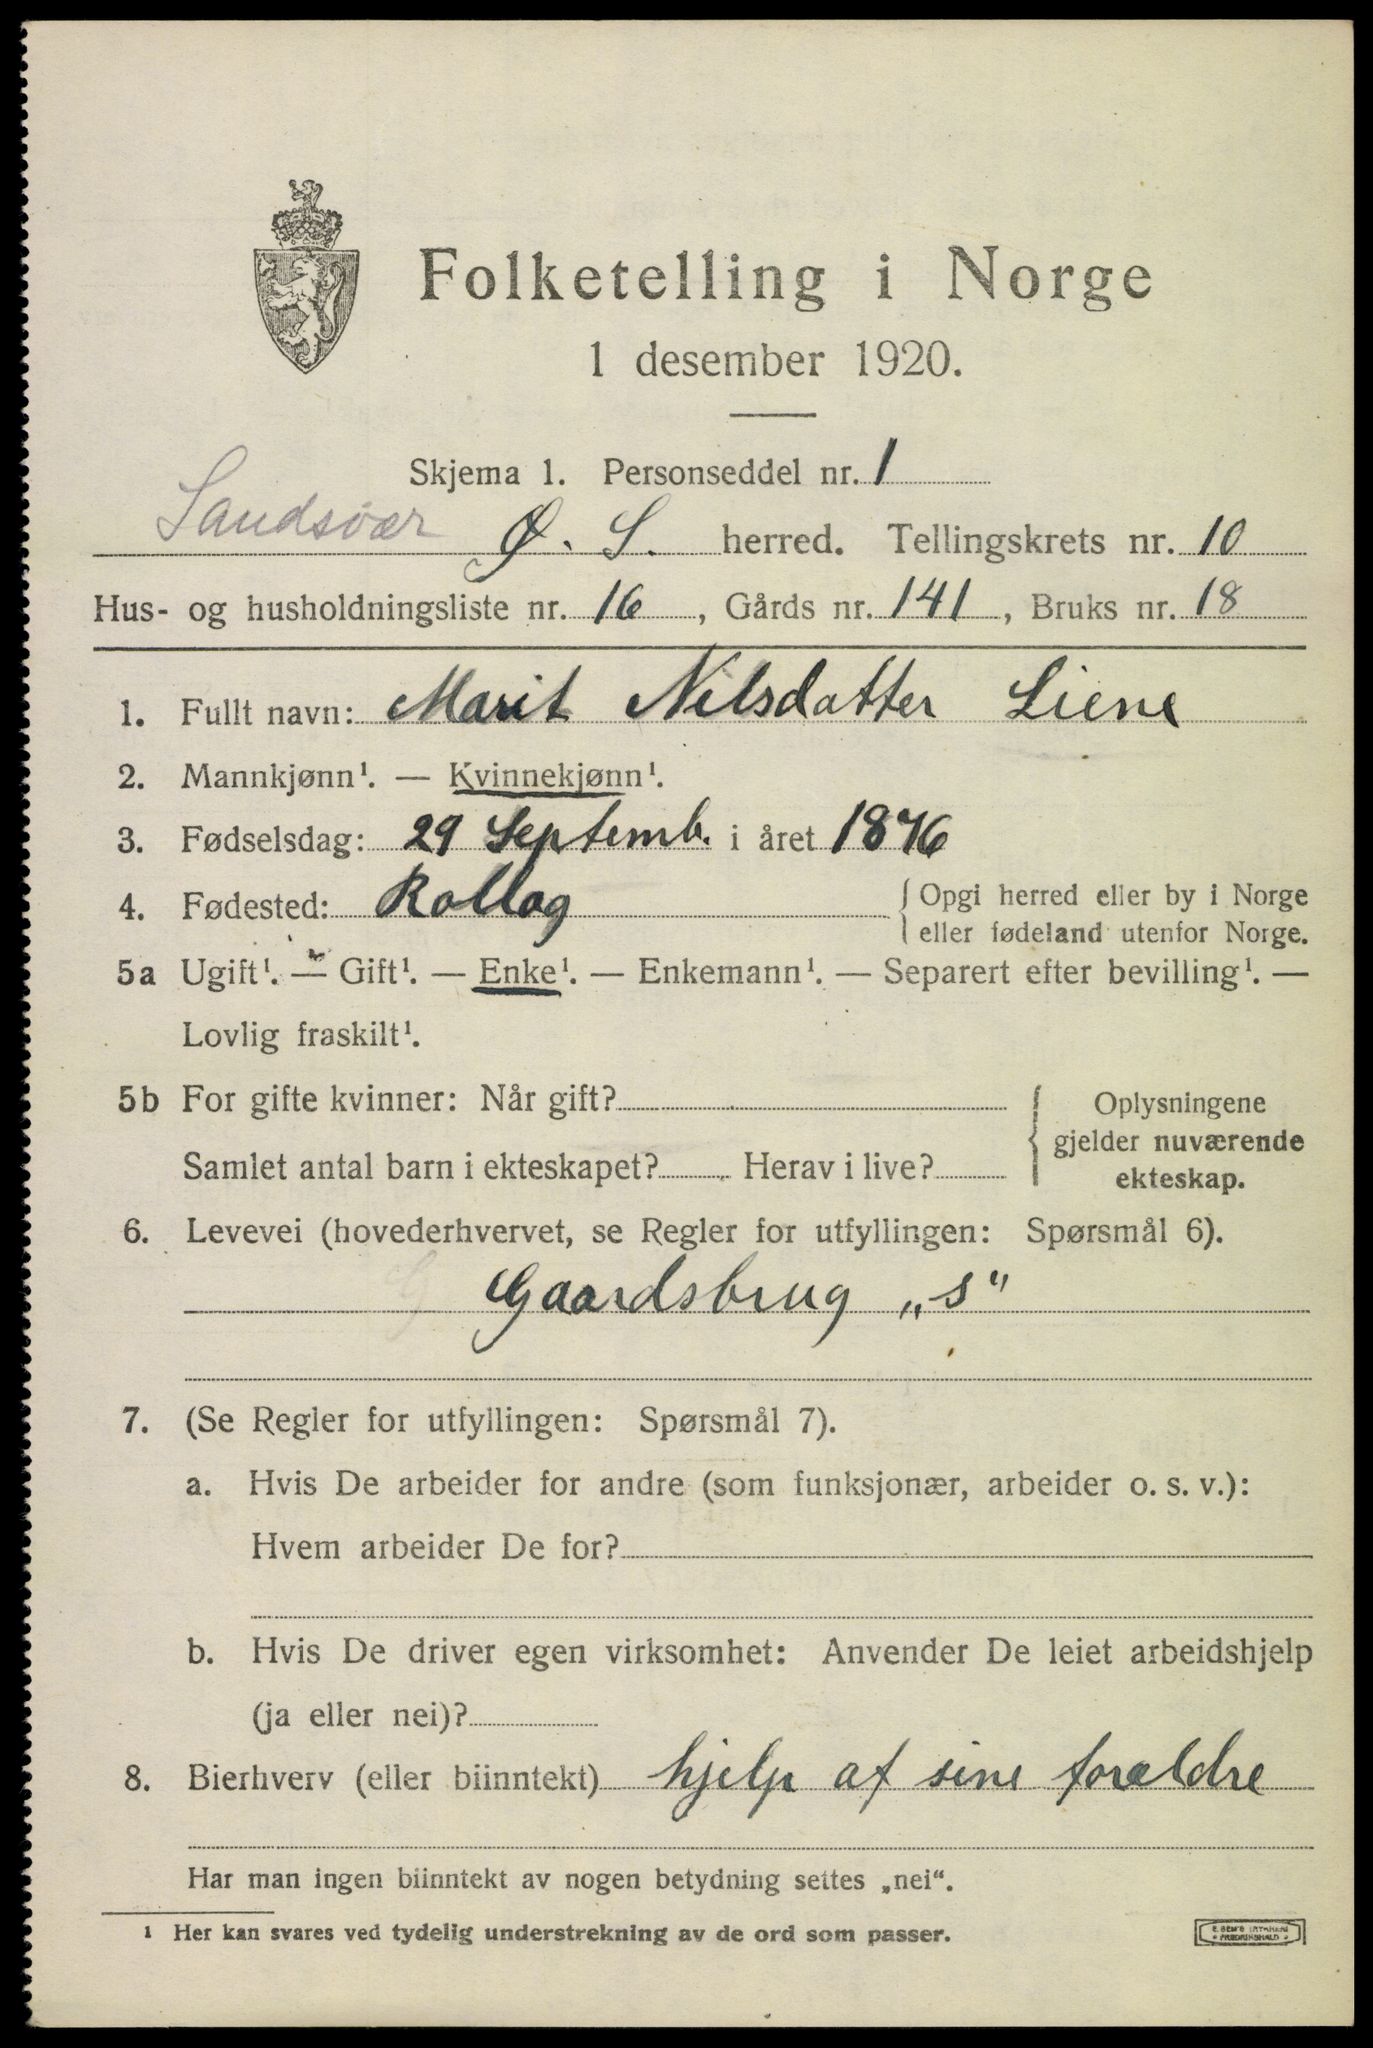 Folketelling i Norge
1 desember 1920.
Skjema 1. Personseddel nr. 1
Sandsvær Ø. S. herred. Tellingskrets nr. 10
Hus- og husholdningsliste nr. 16, Gårds nr. 141, Bruks nr. 18
1. Fullt navn: Marit Nilsdatter Liene
2. Mannkjønn¹. — Kvinnekjønn¹.
3. Fødselsdag: 29 Septemb. i året 1876
4. Fødested: Rollag { Opgi herred eller by i Norge
eller fødeland utenfor Norge.
5a Ugift¹. — Gift¹. — Enke¹. — Enkemann¹. — Separert efter bevilling¹. —
Lovlig fraskilt¹.
5b For gifte kvinner: Når gift?
Samlet antal barn i ekteskapet? Herav i live?
{ Oplysningene
gjelder nuværende
ekteskap.
6. Levevei (hovederhvervet, se Regler for utfyllingen: Spørsmål 6).
G Gaardsbrug „s“
7. (Se Regler for utfyllingen: Spørsmål 7).
a. Hvis De arbeider for andre (som funksjonær, arbeider o. s. v.):
Hvem arbeider De for?
b. Hvis De driver egen virksomhet: Anvender De leiet arbeidshjelp
(ja eller nei)?
8. Bierhverv (eller biinntekt) hjelp af sine forældre
Har man ingen biinntekt av nogen betydning settes „nei“.
¹ Her kan svares ved tydelig understrekning av de ord som passer.
FREDRIKSHALD